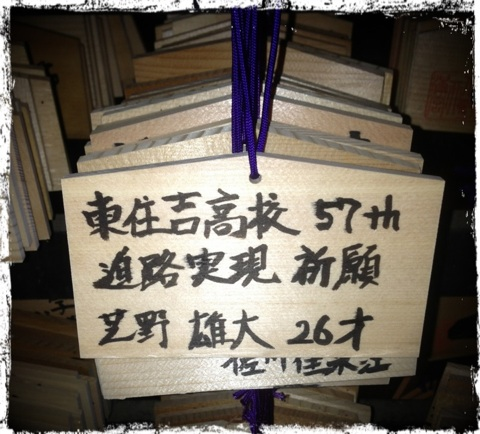 東住吉高校 57th
進路実現 祈願
芝野 雄大 26才